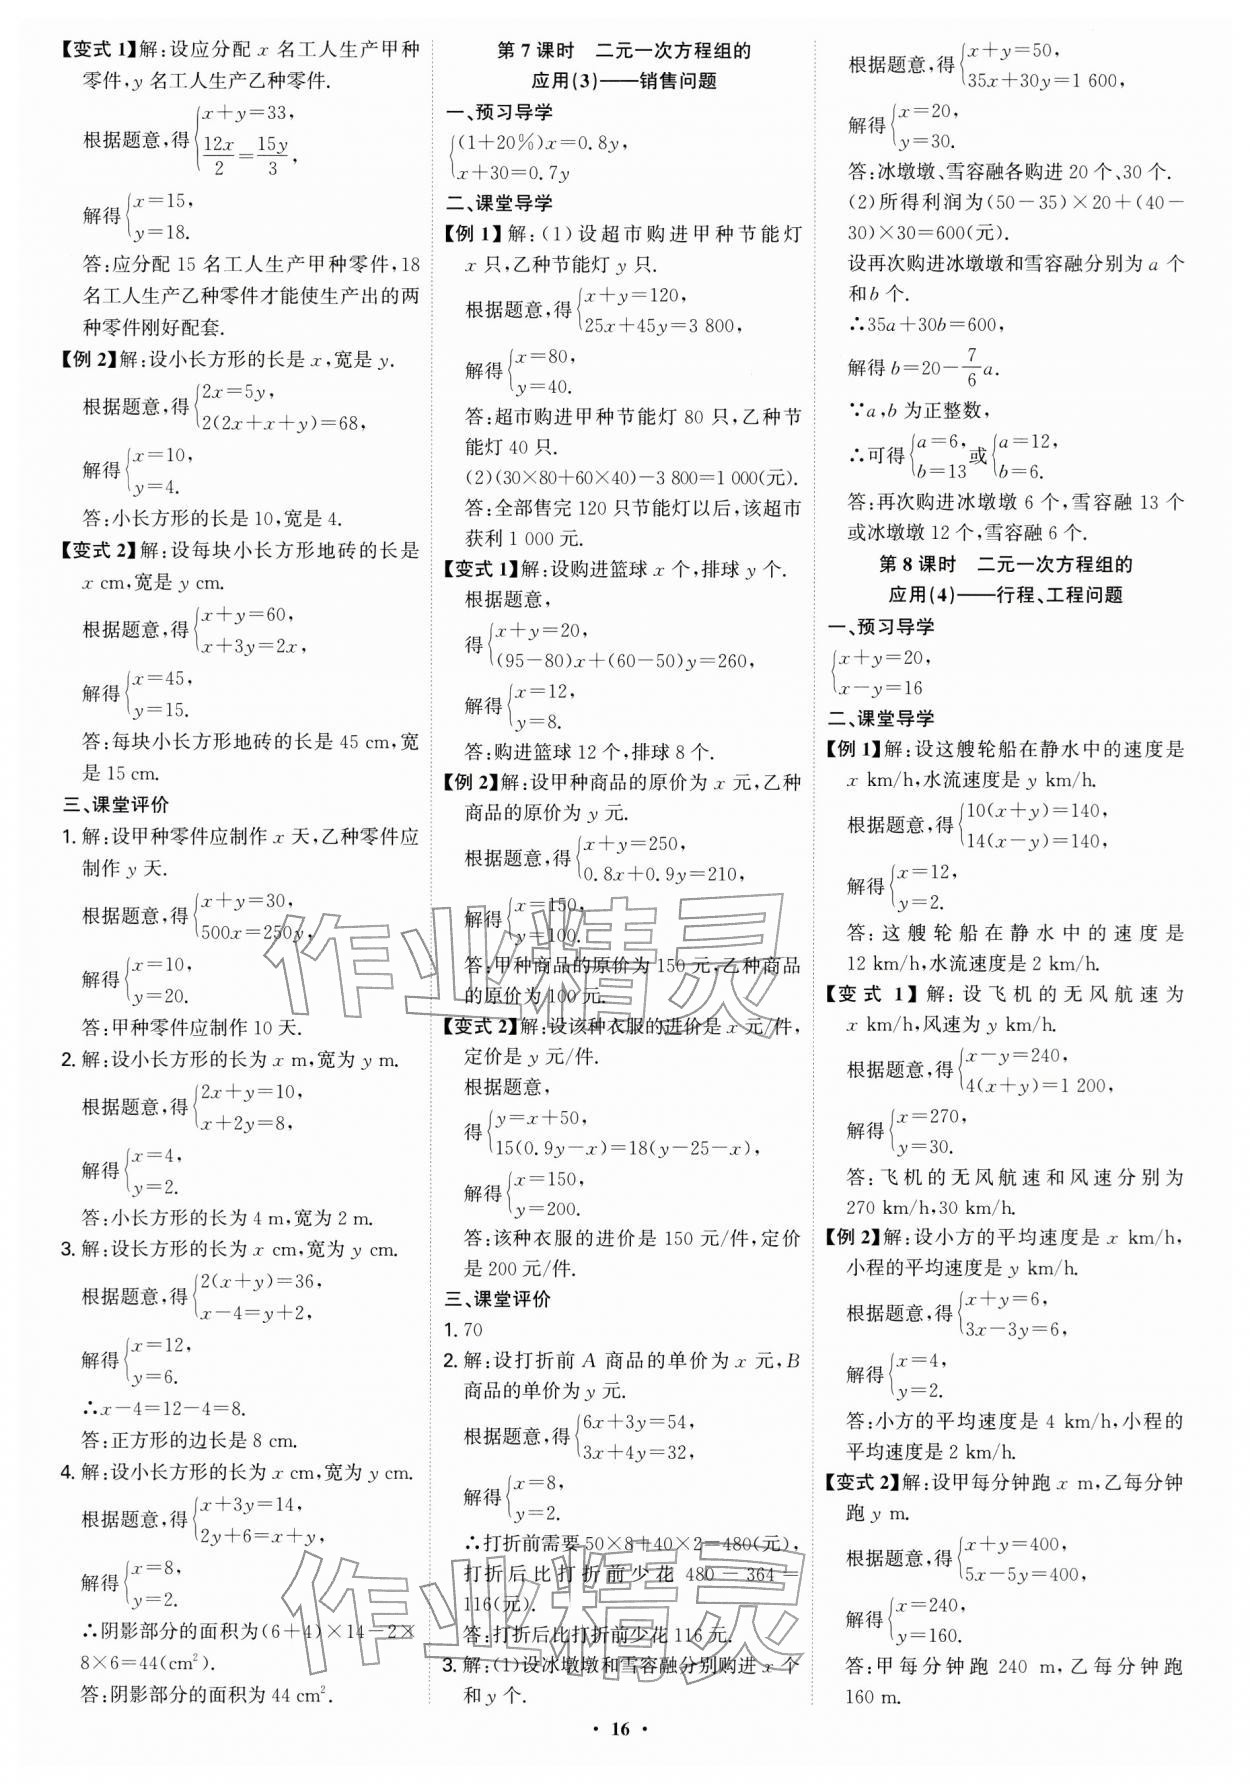 【变式 1】解:设应分配 x 名工人生产甲种
零件,y 名工人生产乙种零件.
根据题意,得{x+y=33,
12x/2=15y/3,
解得{x=15,
y=18.
答:应分配 15 名工人生产甲种零件,18
名工人生产乙种零件才能使生产出的两
种零件刚好配套.
【例 2】解:设小长方形的长是 x,宽是 y.
根据题意,得{2x=5y,
2(2x+x+y)=68,
解得{x=10,
y=4.
答:小长方形的长是 10,宽是 4.
【变式 2】解:设每块小长方形地砖的长是
x cm,宽是 y cm.
根据题意,得{x+y=60,
x+3y=2x,
解得{x=45,
y=15.
答:每块小长方形地砖的长是 45 cm,宽
是 15 cm.
三、课堂评价
1. 解:设甲种零件应制作 x 天,乙种零件应
制作 y 天.
根据题意,得{x+y=30,
500x=250y,
解得{x=10,
y=20.
答:甲种零件应制作 10 天.
2. 解:设小长方形的长为 x m,宽为 y m.
根据题意,得{2x+y=10,
x+2y=8,
解得{x=4,
y=2.
答:小长方形的长为 4 m,宽为 2 m.
3. 解:设长方形的长为 x cm,宽为 y cm.
根据题意,得{2(x+y)=36,
x-4=y+2,
解得{x=12,
y=6.
∴x-4=12-4=8.
答:正方形的边长是 8 cm.
4. 解:设小长方形的长为 x cm,宽为 y cm.
根据题意,得{x+3y=14,
2y+6=x+y,
解得{x=8,
y=2.
∴阴影部分的面积为(6+4)×14-2×
8×6=44(cm²).
答:阴影部分的面积为 44 cm².
第 7 课时 二元一次方程组的
应用(3)——销售问题
一、预习导学
{(1+20%)x=0.8y,
x+30=0.7y
二、课堂导学
【例 1】解:(1)设超市购进甲种节能灯
x 只,乙种节能灯 y 只.
根据题意,得{x+y=120,
25x+45y=3 800,
解得{x=80,
y=40.
答:超市购进甲种节能灯 80 只,乙种节
能灯 40 只.
(2)(30×80+60×40)-3 800=1 000(元).
答:全部售完 120 只节能灯以后,该超市
获利 1 000 元.
【变式 1】解:设购进篮球 x 个,排球 y 个.
根据题意,
得{x+y=20,
(95-80)x+(60-50)y=260,
解得{x=12,
y=8.
答:购进篮球 12 个,排球 8 个.
【例 2】解:设甲种商品的原价为 x 元,乙种
商品的原价为 y 元.
根据题意,得{x+y=250,
0.8x+0.9y=210,
解得{x=150,
y=100.
答:甲种商品的原价为 150 元,乙种商品
的原价为 100 元.
【变式 2】解:设该种衣服的进价是 x 元/件,
定价是 y 元/件.
根据题意,
得{y=x+50,
15(0.9y-x)=18(y-25-x),
解得{x=150,
y=200.
答:该种衣服的进价是 150 元/件,定价
是 200 元/件.
三、课堂评价
1. 70
2. 解:设打折前 A 商品的单价为 x 元,B
商品的单价为 y 元.
根据题意,得{6x+3y=54,
3x+4y=32,
解得{x=8,
y=2.
∴打折前需要 50×8+40×2=480(元),
打折后比打折前少花 480-364=
116(元).
答:打折后比打折前少花 116 元.
3. 解:(1)设冰墩墩和雪容融分别购进 x 个
和 y 个.
根据题意,得{x+y=50,
35x+30y=1 600,
解得{x=20,
y=30.
答:冰墩墩、雪容融各购进 20 个、30 个.
(2)所得利润为(50-35)×20+(40-
30)×30=600(元).
设再次购进冰墩墩和雪容融分别为 a 个
和 b 个.
∴35a+30b=600,
解得 b=20-7/6a.
∵a,b 为正整数,
∴可得{a=6,
b=13 或{a=12,
b=6.
答:再次购进冰墩墩 6 个,雪容融 13 个
或冰墩墩 12 个,雪容融 6 个.
第 8 课时 二元一次方程组的
应用(4)——行程、工程问题
一、预习导学
{x+y=20,
x-y=16
二、课堂导学
【例 1】解:设这艘轮船在静水中的速度是
x km/h,水流速度是 y km/h.
根据题意,得{10(x+y)=140,
14(x-y)=140,
解得{x=12,
y=2.
答:这艘轮船在静水中的速度是
12 km/h,水流速度是 2 km/h.
【变式 1】解:设飞机的无风航速为
x km/h,风速为 y km/h.
根据题意,得{x-y=240,
4(x+y)=1 200,
解得{x=270,
y=30.
答:飞机的无风航速和风速分别为
270 km/h,30 km/h.
【例 2】解:设小方的平均速度是 x km/h,
小程的平均速度是 y km/h.
根据题意,得{x+y=6,
3x-3y=6,
解得{x=4,
y=2.
答:小方的平均速度是 4 km/h,小程的
平均速度是 2 km/h.
【变式 2】解:设甲每分钟跑 x m,乙每分钟
跑 y m.
根据题意,得{x+y=400,
5x-5y=400,
解得{x=240,
y=160.
答:甲每分钟跑 240 m,乙每分钟跑
160 m.
作业精灵
作业精灵
· 16 ·